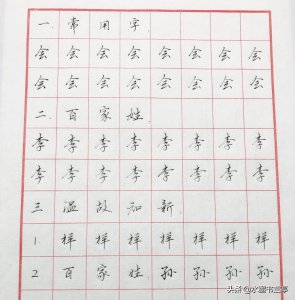 一.常用字
会会会会会会会会
会会会会会会会会
二.百家姓.
李李李李李李李李
李李李李李李李李
三温故知新.
1样样样样样样样
2百家姓孙孙孙孙